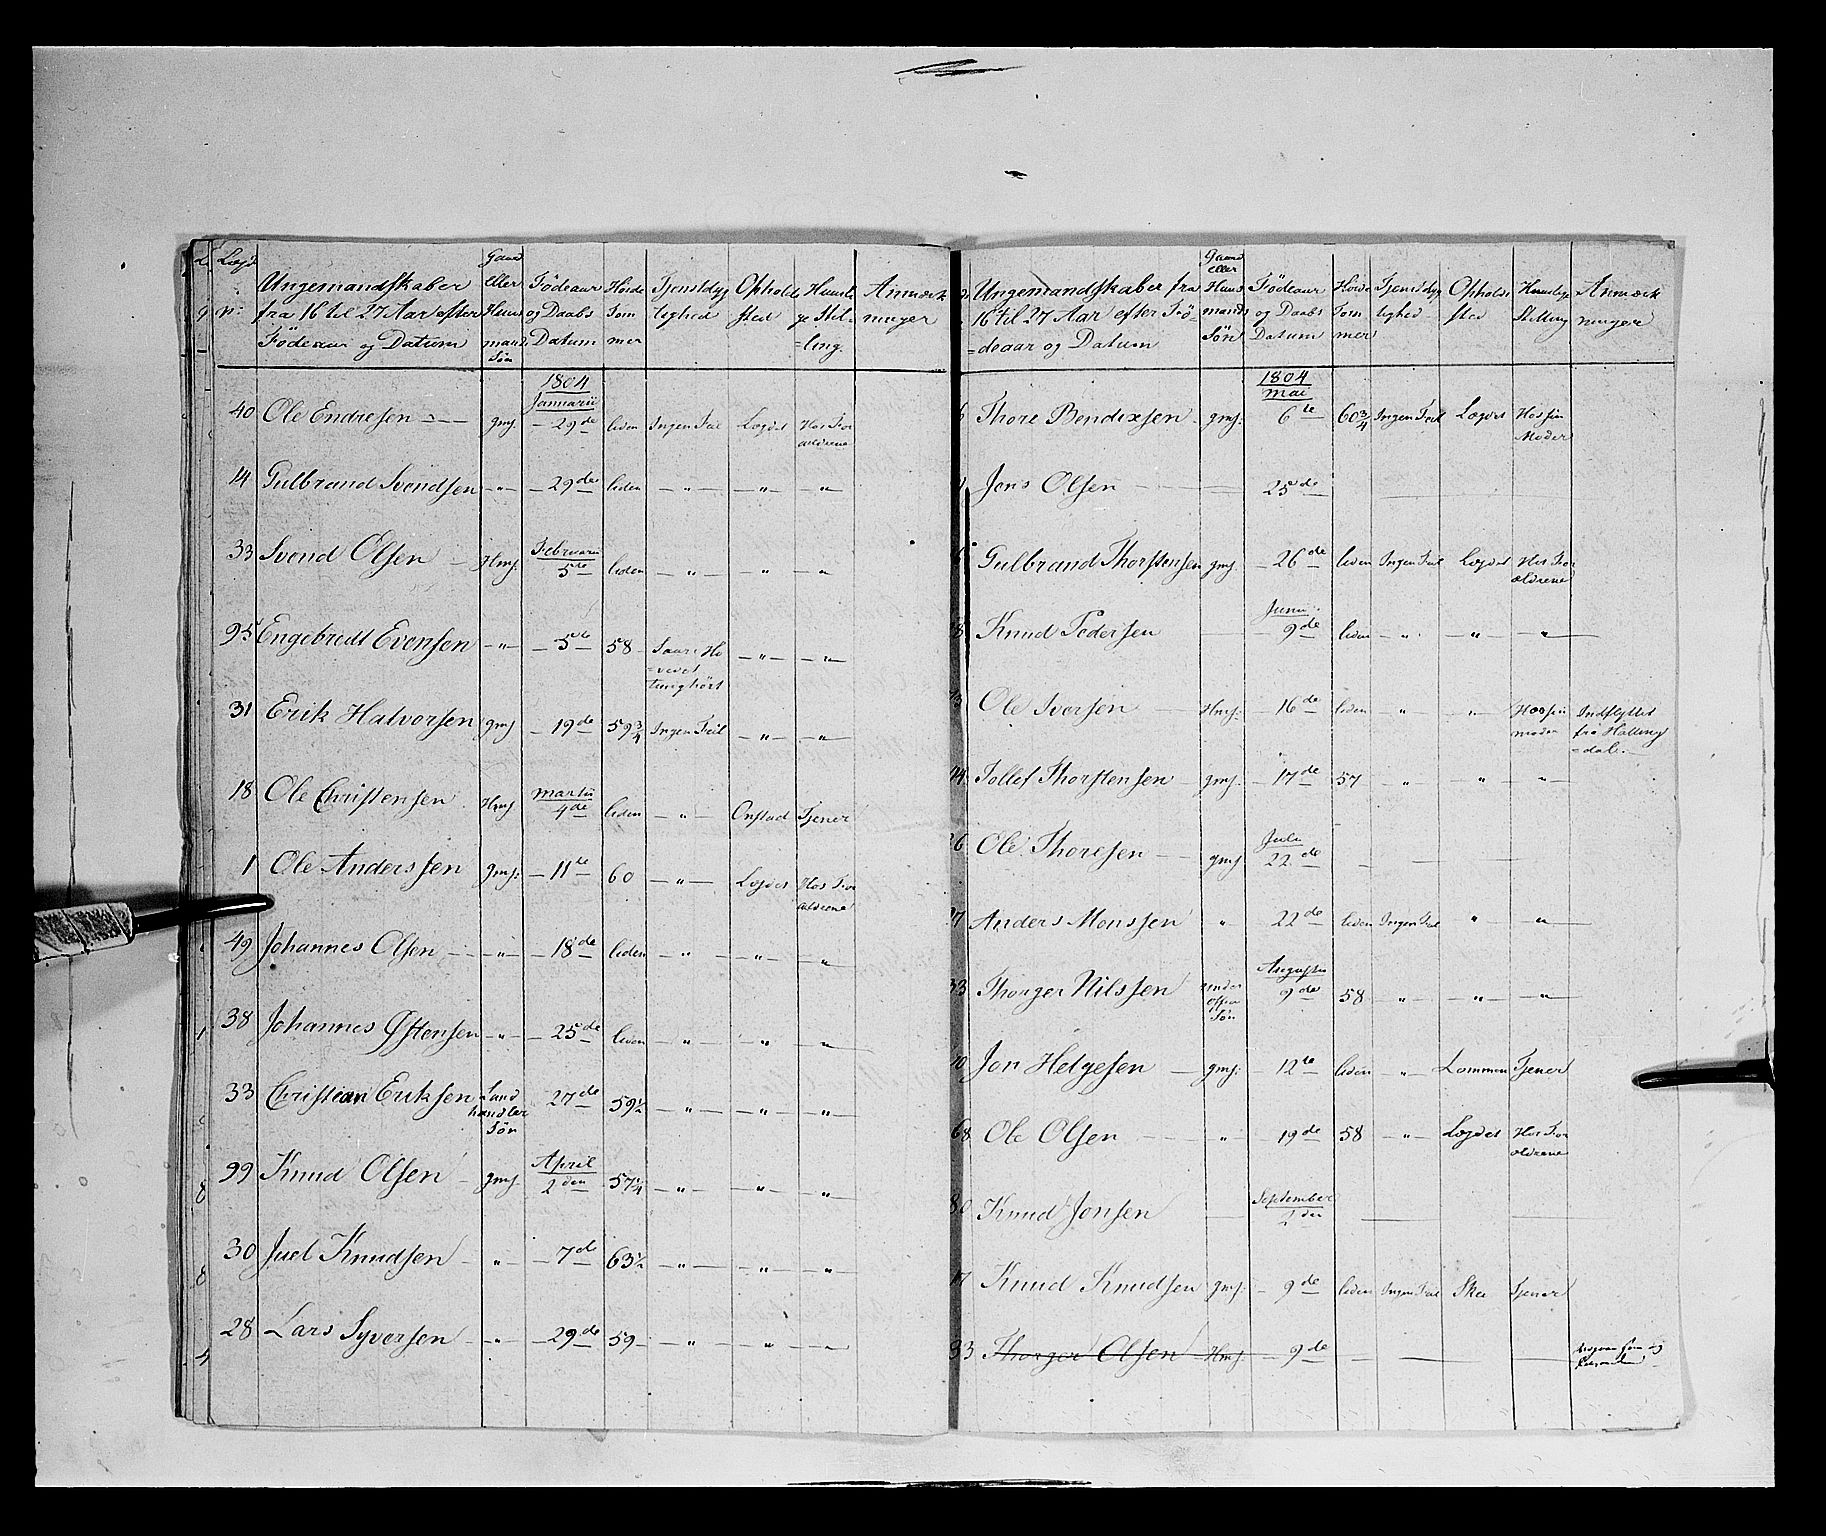 Lægd
n:
Ungemandskaber
fra 16 til 27 Aar efter
Fødeaar og Datum
Gaard
eller
Huus
mands
Søn
Fødeaar
og Daabs
Datum
Høide
Tom
mer
Tjenstdyg
tighed
Ophold
sted
Huusli
ge Stil
=ling.
Anmærk
ninger
1804
Januarii
40 Ole Endresen — gmS. — 29de liden Ingen Feil Lægdet Hos For
ældrene
14 Gulbrand Svendsen — " — — 29de liden — " — — " — — " —
Februarii
33 Svend Olsen — HmS. 5te liden — " — — " — — " —
95 Engebredt Evensen — " — — 5te 58 — Saar i Ho — " — — " —
=vedet
tunghört
31 Erik Halvorsen gmS — 19de 59 3/4 Ingen Feil — " — — " —
Martii
18 Ole Christensen HmS 4de liden — " — Onstad Tjener
1 Ole Anderssen gmS: — 11te 60 — " — Lægdet Hos For
ældrene
49 Johannes Olsen — — " — — 18de liden — " — — " — — " —
38 Johannes Østensen — " — — 25de liden — " — — " — — " —
33 Christian Eriksen Land 27de 59 1/2 — " — — " — — " —
handler
Søn
April
99 Knud Olsen — gmS. 2den 57 1/4 — " — — " — — " —
30 Juel Knudsen — — " — — 7de 63 1/2 — " — — " — — " —
28 Lars Syversen — — " — — 29de 59 — — " — — " — — " —
Ungemandskaber fra
16 til 27 Aar efter Fø-
=deaar og Datum
Gaard
eller
Huus
mands
Søn
Fødeaar
og Daabs
Datum
Høide
Tom
mer
Tjenstdyg
tighed
Ophold
sted
Huuslige
Stilling
Anmærk
ninger
1804
Mai
Thore Bendixsen — gmS. — 6te 60 3/4 Ingen Feil Lægdet Hos sin
Moder
Jens Olsen — — 25de —
Gulbrand Thorstensen gmS. — 26de liden Ingen Feil Lægdet Hos For
ældrene
Junii
Knud Pedersen — 9de liden — " — " — " —
Ole Iversen — HmS. — 16de liden " " Hos sin Indflyttet
moder fra Halling
=dal.
44 Tollef Thorstensen — gmS. — 17de 57 — " — " — " —
Juli
26 Ole Thoresen — gmS 22de — — —
Anders Monssen " — 22de liden Ingen Feil " — " —
Augustii
33 Thorger Nilssen under 9de 58 — " — — " — — " —
officer
Søn
Jon Helgesen — gmS: — 12te liden — " — Lommen Tjener
68 Ole Olsen — " — 19de 58 — " — Lægdet Hos For
ældrene
September
80 Knud Jonsen — 2den — —
17 Knud Knudsen gmS: — 9de liden Ingen Feil Ske Tjener
33 Thorger Olsen HmS. — 9de — — —